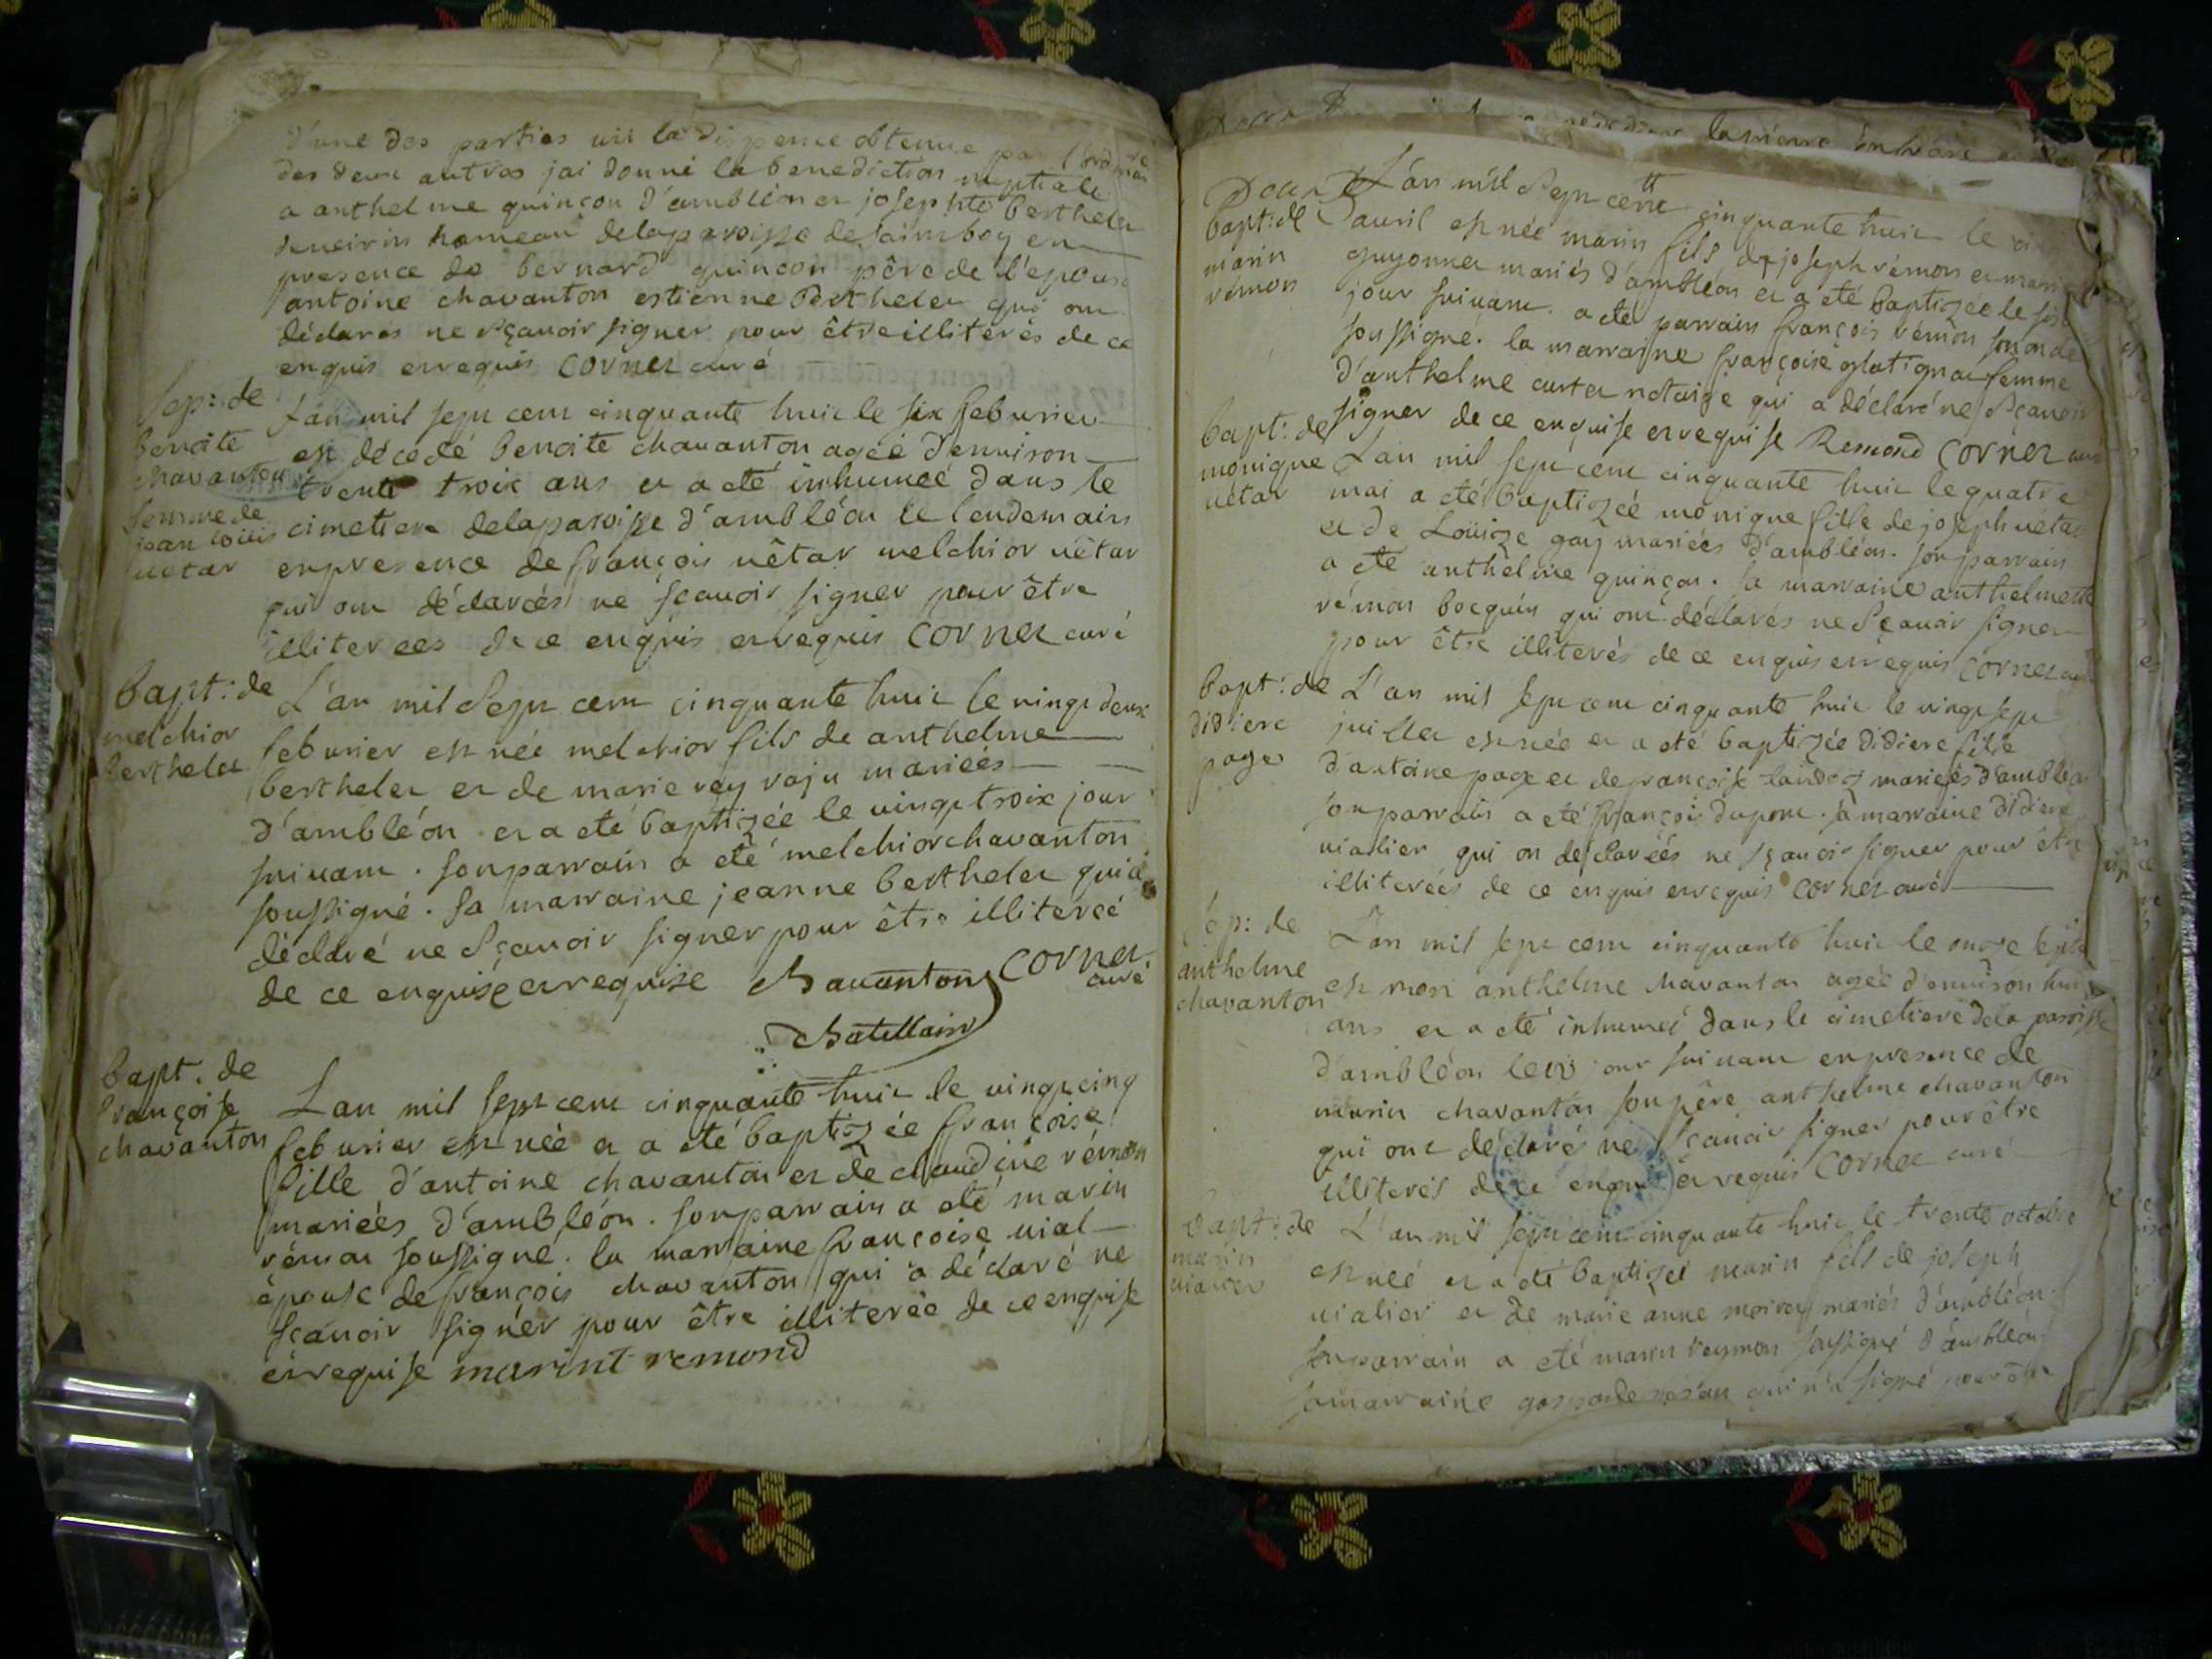 d'une des parties vû la dispence obtenue par l'ordinaire
des deux autres jai donné la benediction nuptiale
a anthelme quinçon d'ambléon et josephte berthelet
hameau delaparoisse de saintboy en
presence de bernard quinçon pêre de l'epouse
antoine chavanton estienne berthelet qui ont
déclarés ne sçavoir signer pour être illiterés de ce
enquis et requis cornet curé
sep: de
benoite
chavanton
femme de
jean louis
uétar
Lan mil sept cent cinquante huit le six feburier
est décedé benoite chavanton ageé d'environ
trente trois ans et a eté inhumeé dans le
cimetiere delaparoisse d'ambléon le lendemain
enpresence de françois uêtar melchior uêtar
qui ont déclarés ne sçavoir signer pour être
illiterees de ce enquis et requis cornet curé
bapt: de
melchior
berthelet
L'an mil sept cent cinquante huit le vingt deux
feburier est née melchior fils de anthelme
berthelet et de marie rey raju marieés
d'ambléon et a eté baptizéé le vingt troix jour
suivant. sonparrain a eté melchior chavanton
soussigné. sa marraine jeanne berthelet qui a
déclaré ne sçavoir signer pour être illitereé
de ce enquise et requise Chavanton cornet
curé
Chatellain
bapt. de
françoise
chavanton
Lan mil sept cent cinquante huit le vingt cinq
feburier est née et a eté baptizée françoise
fille d'antoine chavanton et de claudine rémon
marieés d'ambléon. sonparrain a eté marin
rémon soussigné. la marraine françoise vial
épouse de françois chavanton qui a déclaré ne
sçavoir signer pour être illiterée de ce enquise
et requise marint remond
bapt: de
marin
rémon
L'an mil sept cent cinquante huit le
avril est née marin fils de joseph rémon et
guyonnet mariés d'ambléon et a eté baptizée le
jour suivant. a eté parrain françois rémon son oncle
soussigné. la marraine françoise glatignac femme
d'anthelme curtet notaire qui a déclaré ne sçavoir
signer de ce enquise et requise Remond cornet curé
bapt: de
monique
uétar
Lan mil sept cent cinquante huit le quatre
mai a eté baptizée monique fille de joseph uétar
et de Louize gay marieés d'ambléon. son parrain
a eté anthelme quinçon. sa marraine anthelmette
rémon bocquin qui ont déclarés ne sçavoir signer
pour être illiterés de ce enquis et requis cornet curé
bapt: de
didiere
page
L'an mil sept cent cinquante huit le vingt sept
juillet est née et a eté baptizée didiere fille
d'antoine page et de françoise mariées d'ambléon
son parrain a eté françois dupont. sa marraine didiere
uialier qui on déclareés ne sçavoir signer pour être
illitereés de ce enquis et requis cornet curé
sep: de
anthelme
chavanton
L'an mil sept cent cinquante huit le onze
est mort anthelme chavanton ageé d'environ huit
ans et a eté inhumé dans le cimetiere dela paroisse
d'ambléon le jour suivant enpresence de
marin chavanton son pêre anthelme chavanton
qui ont déclarés ne sçavoir signer pour être
illiterés de ce enquis et requis cornet curé
bapt: de
marin
uialier
L'an mil sept cent cinquante huit le trente octobre
est neé et a eté baptizeé marin fils de joseph
uialier et de marie anne mariés d'ambléon
son parrain a eté marin reymon soussigné d'ambléon
sa marraine qui n'a signé pour être